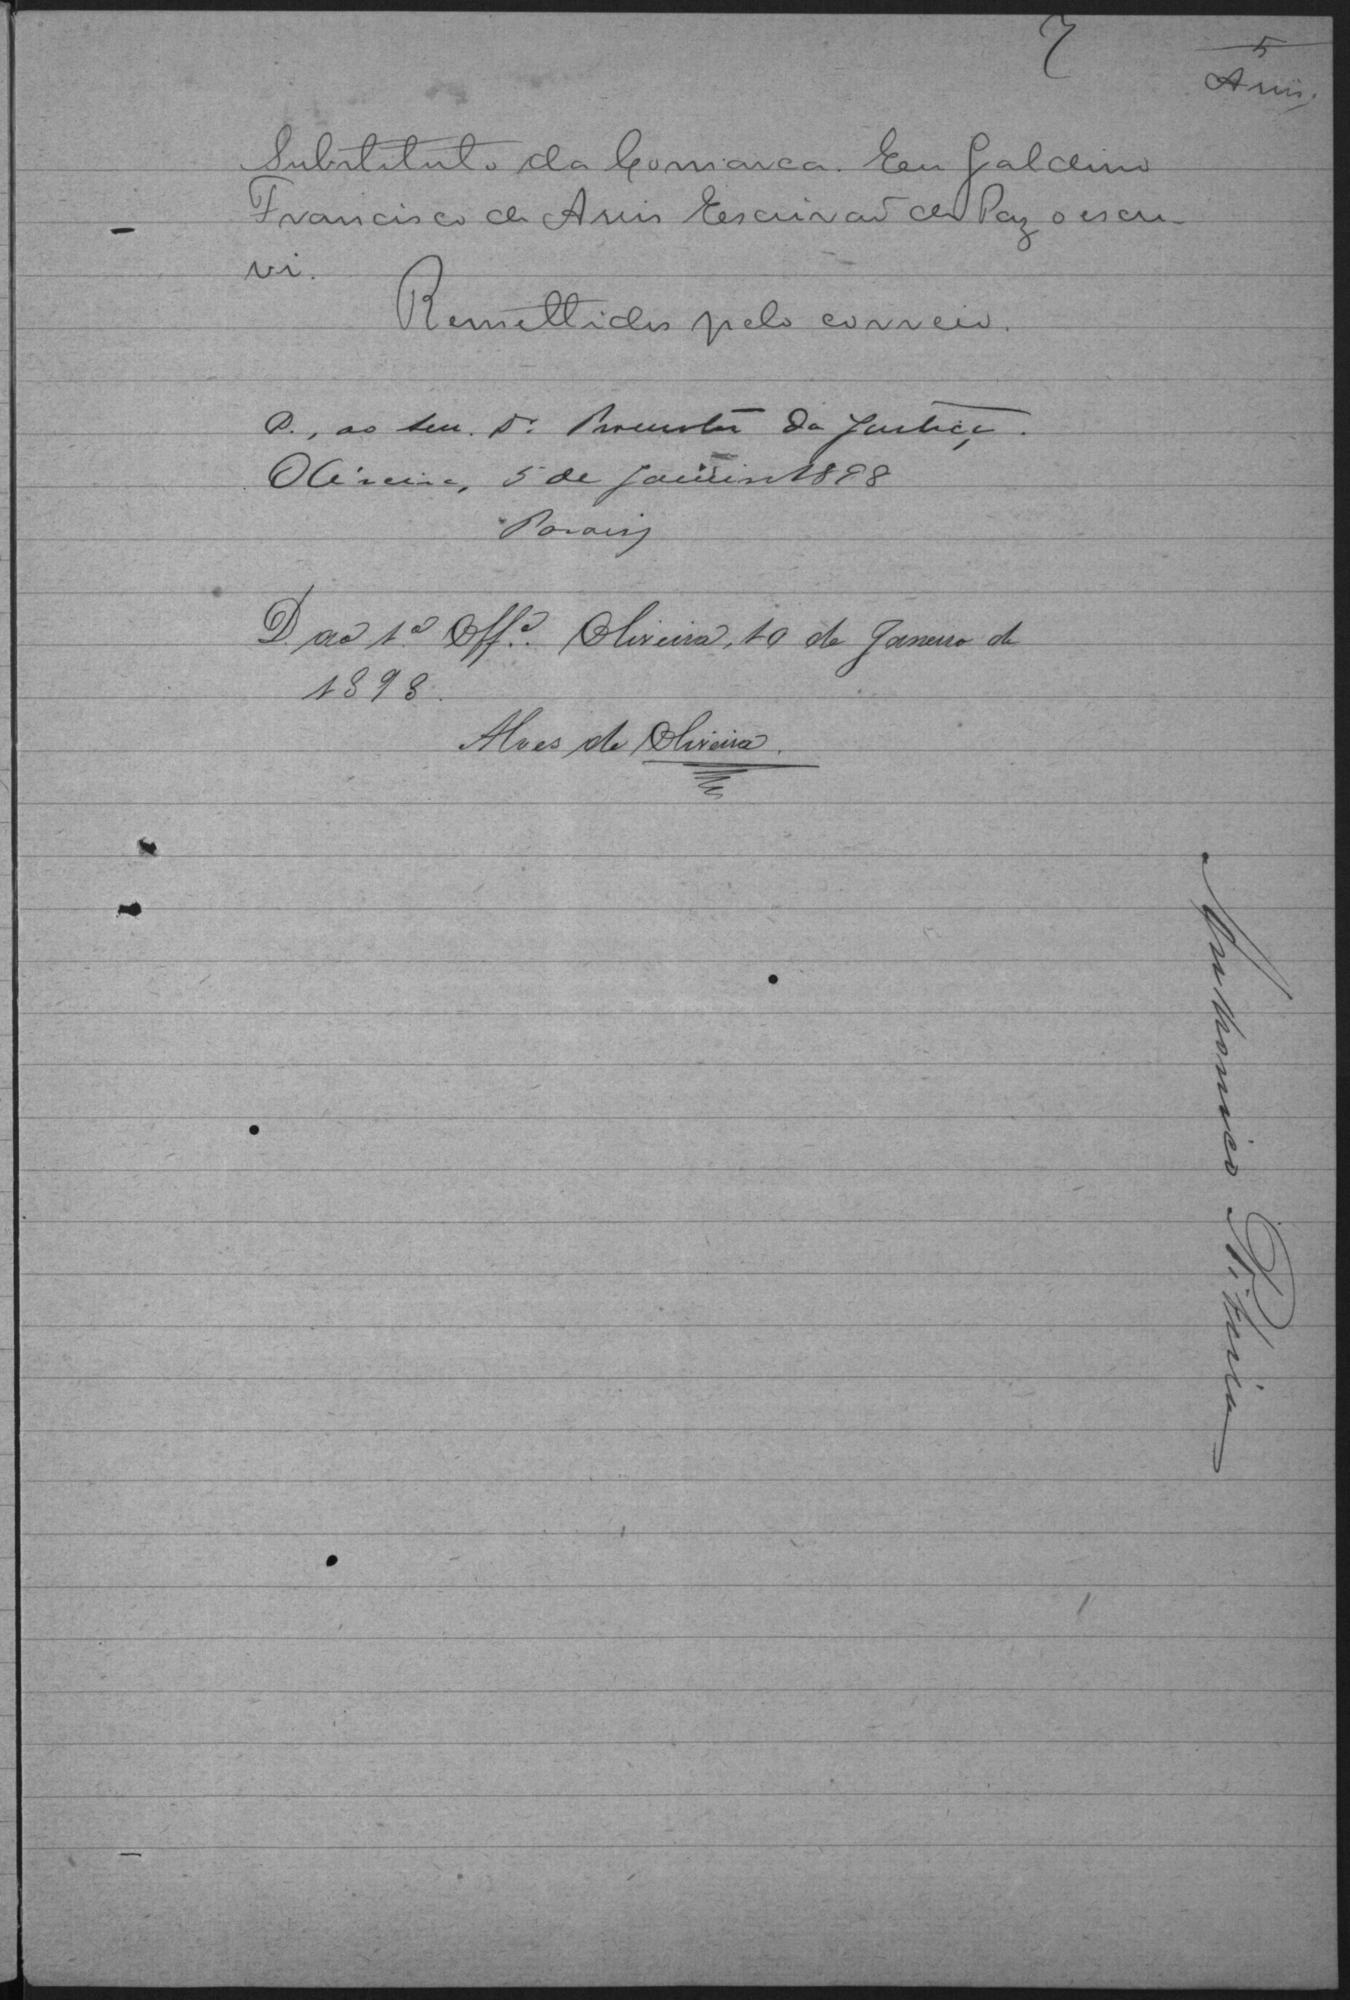 7
5
Assis.
Substituto da Comarca. Eu Galdino
Francisco de Assis Escrivaõ de Paz o escre-
vi.
Remettidos pelo correio.
D., ao sen. Dr. Promotor da Justiça.
Oliveira, 5 de Janeiro 1898
D. ao 1º Offº. Oliveira, 10 de Janeiro de
1898.
Alves de Oliveira.